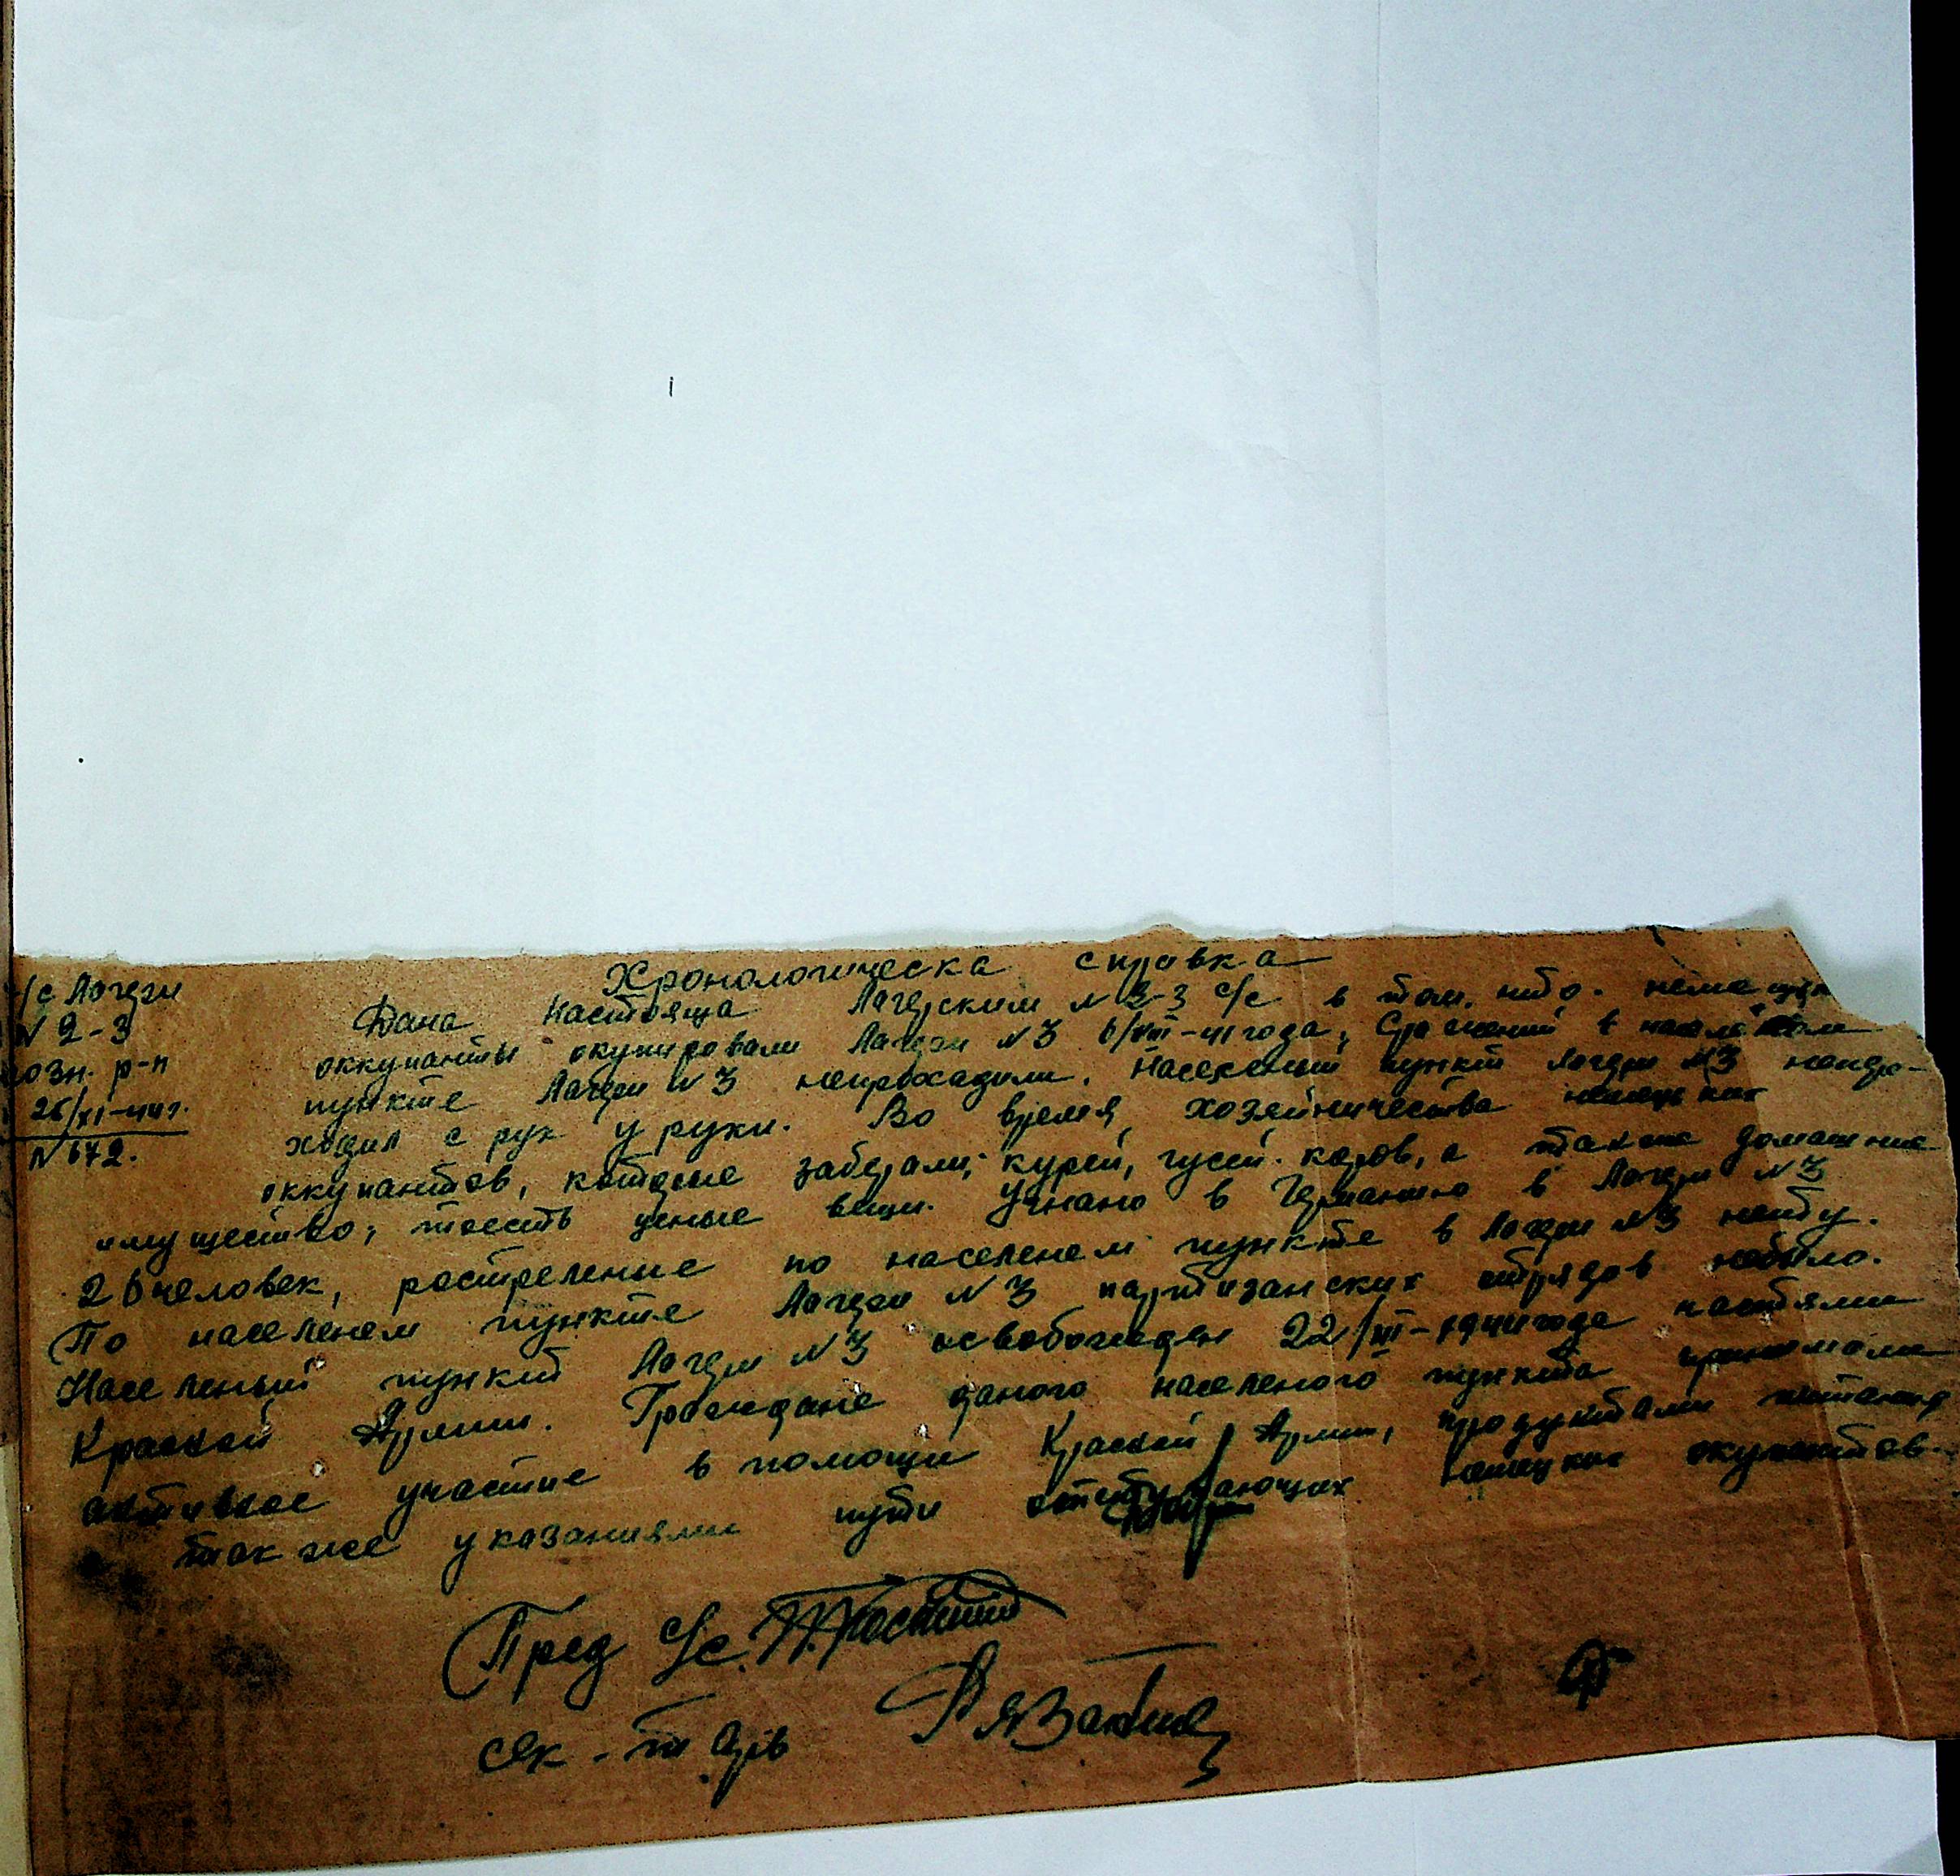 Хронологическа справка
/с Лагери
N 2-3
озн. р-н
26/XI-44г.
N 672.
Дана настояща Лагерским N 2-3 с/с в том, што. немецки
оккупанты окупировали Лагери N3 6/VIII-41 года, Сражений в населеном
пункте Лагери N3 непроходили. Населеный пункт Лагери N3 непре-
ходил с рук у руки. Во время хозяйничества немецких
оккупантов, которые заберали; курей, гусей. коров, а также домашние
имущество; тоесть ценые вещи. Угнано в Германию в Лагери N3
26 человек, растреленые по населенем пункте в Лагери N3 нету.
По населенем пункте Лагери N3 партизанских отрядов небыло.
Населеный пункт Лагери N3 освобожден 22/III-1944 года частями
Красной Армии. Граждане даного населеного пункта принимали
активное участие в помощи Красной Армии, продуктами питания
так же указаниями пути отступающих немецких окупантов.
Пред с/с.
Сек-тарь Рязанец